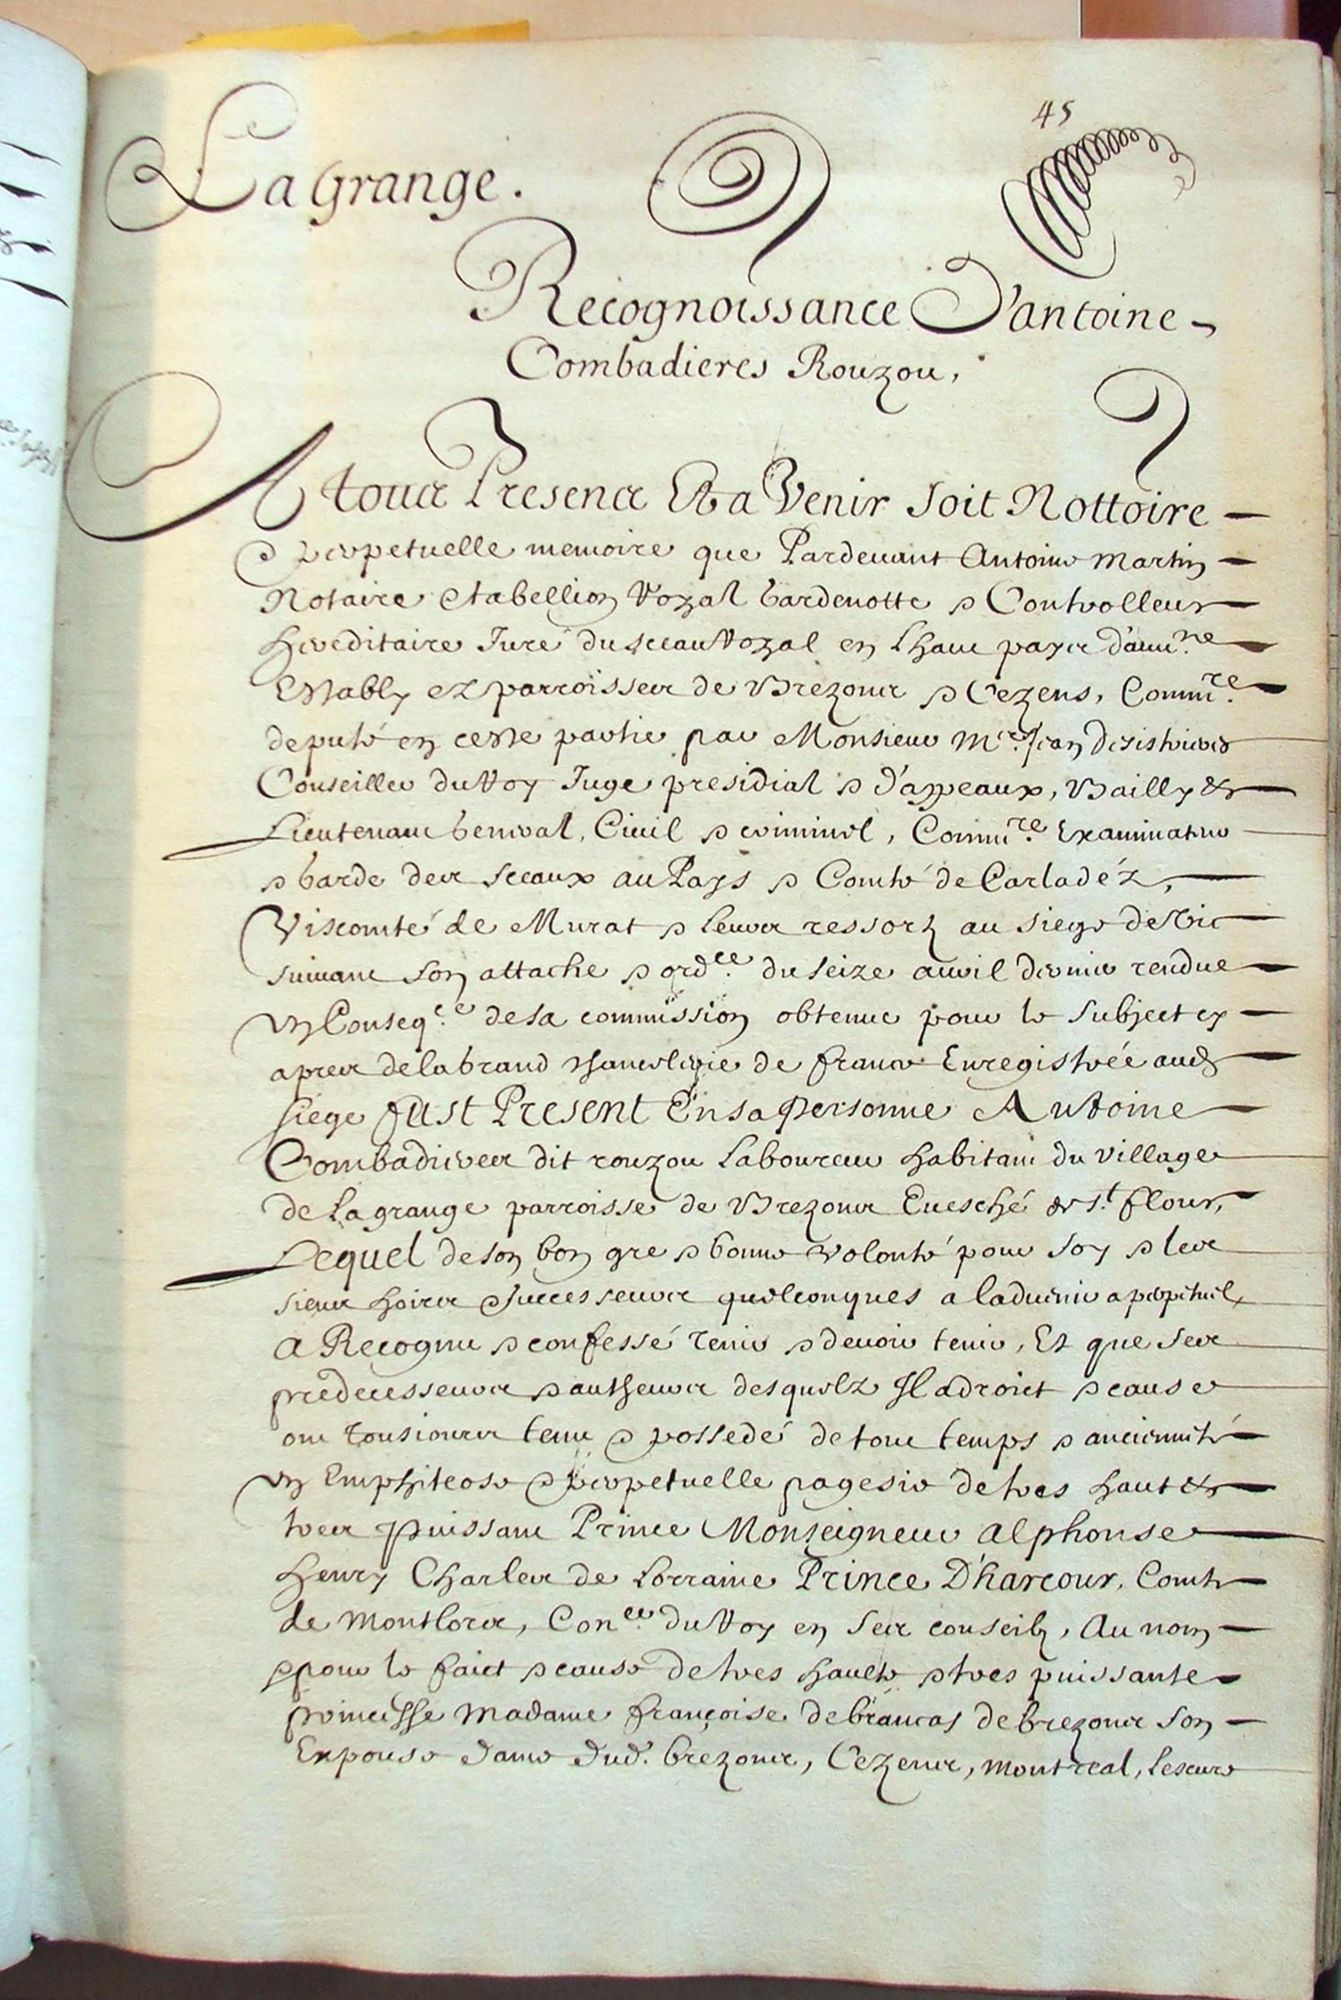 45
La Grange.
Recognoissance D'antoine
Combadieres Rouzou,
A tous Presens Et a Venir Soit Nottoire
& perpetuelle memoire que Pardevant Antoine Martin
Notaire & tabellion Royal Gardenotte & Controlleur
hereditaire Juré du sceau Royal en Lhaut payx d'auu.ne
Estably ez parroisses de Brezons & Cezens, Comm.re
deputé en ceste partie par Monsieur M.e Jean
Conseiller du Roy Juge presidial & d'appeaux, Bailly &
Lieutenant General, Civil & criminel, Comm.re Examinateur
& Garde des Sceaux au Pays & Comté de Carladéz,
Viscomté de Murat & leurs ressortz au siege de Vic
suivant son attache & ord.ce du seize avril dernier rendue
en Conseq.ce de sa commission obtenue pour le subject cy
apres de la Grand Chancelerie de france Enregistrée aud.
siege fust Present En sa Personne Antoine
Combadieres dit rouzou Laboureur habitant du village
de La grange parroisse de Brezons Evesché de s.t flour,
Lequel de son bon gre & bonne volonté pour soy & les
siens hoirs & successeurs quelconques a ladvenir a perpetuel,
A Recognu & confessé tenir & devoir tenir, Et que ses
predecesseurs & autheurs desquelz Il a droict & cause
ont tousiours tenu & possedé de tout temps & ancienneté
en Emphiteose & perpetuelle pagesie de tres haut &
tres puissant Prince Monseigneur Alphonse
Henry Charles de Lorraine Prince D'harcour, Comte
de Montlors, Con.er du Roy en ses conseilz, Au nom
& pour le faict & cause de tres haulte & tres puissante
princesse Madame françoise de brancas de brezons son
Expouse dame dud. brezons, Cezens, montreal, lescure